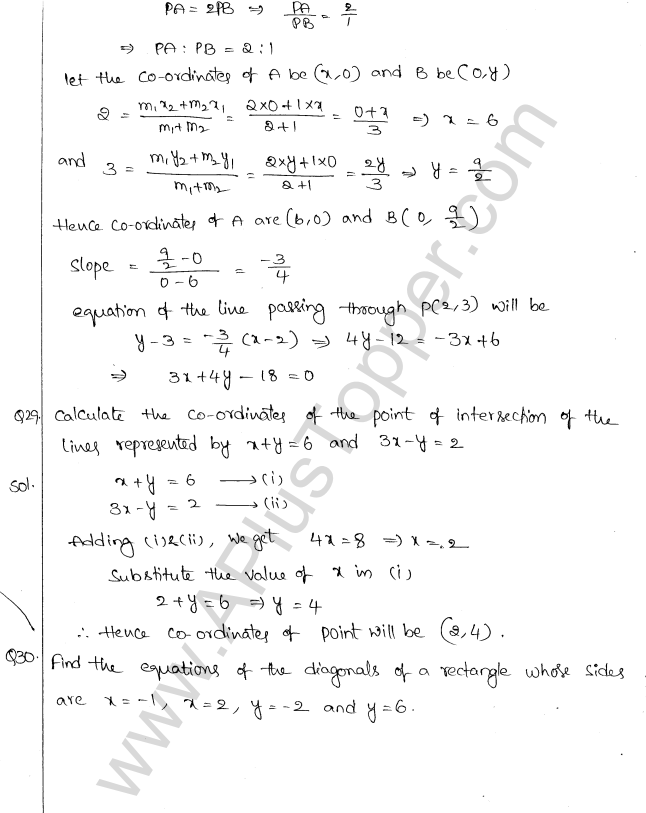 PA = 2PB ⇒ PA/PB = 2/1
⇒ PA : PB = 2 : 1
let the co-ordinates of A be (x,0) and B be (0,y)
2 = (m₁x₂+m₂x₁)/(m₁+m₂) = (2×0+1×x)/(2+1) = (0+x)/3 ⇒ x = 6
and 3 = (m₁y₂+m₂y₁)/(m₁+m₂) = (2×y+1×0)/(2+1) = 2y/3 ⇒ y = 9/2
Hence co-ordinates of A are (6,0) and B(0, 9/2)
Slope = (9/2 - 0)/(0-6) = -3/4
equation of the line passing through P(2,3) will be
y-3 = -3/4 (x-2) ⇒ 4y-12 = -3x+6
⇒ 3x+4y-18 = 0
Q29. Calculate the co-ordinates of the point of intersection of the
lines represented by x+y=6 and 3x-y=2
Sol. x+y = 6 ⟶ (i)
3x-y = 2 ⟶ (ii)
Adding (i)&(ii), we get 4x=8 ⇒ x=.2
Substitute the value of x in (i)
2+y=6 ⇒ y=4
∴ Hence co-ordinates of point will be (2,4).
Q30. Find the equations of the diagonals of a rectangle whose sides
are x=-1, x=2, y=-2 and y=6.
www.APlusTopper.com